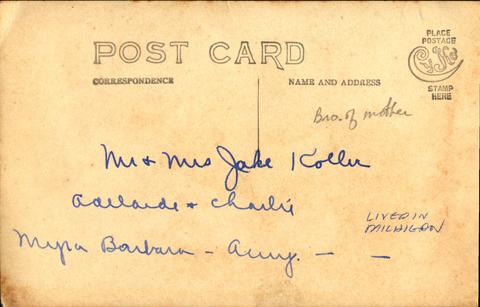 POST CARD
PLACE
POSTAGE
CYKO
STAMP
HERE
CORRESPONDENCE
NAME AND ADDRESS
Bro. of mother
Mr & Mrs Jake Koller
Adellaide & Charlie
LIVED IN
MICHIGAN
Myra Barbara - Amy. — —